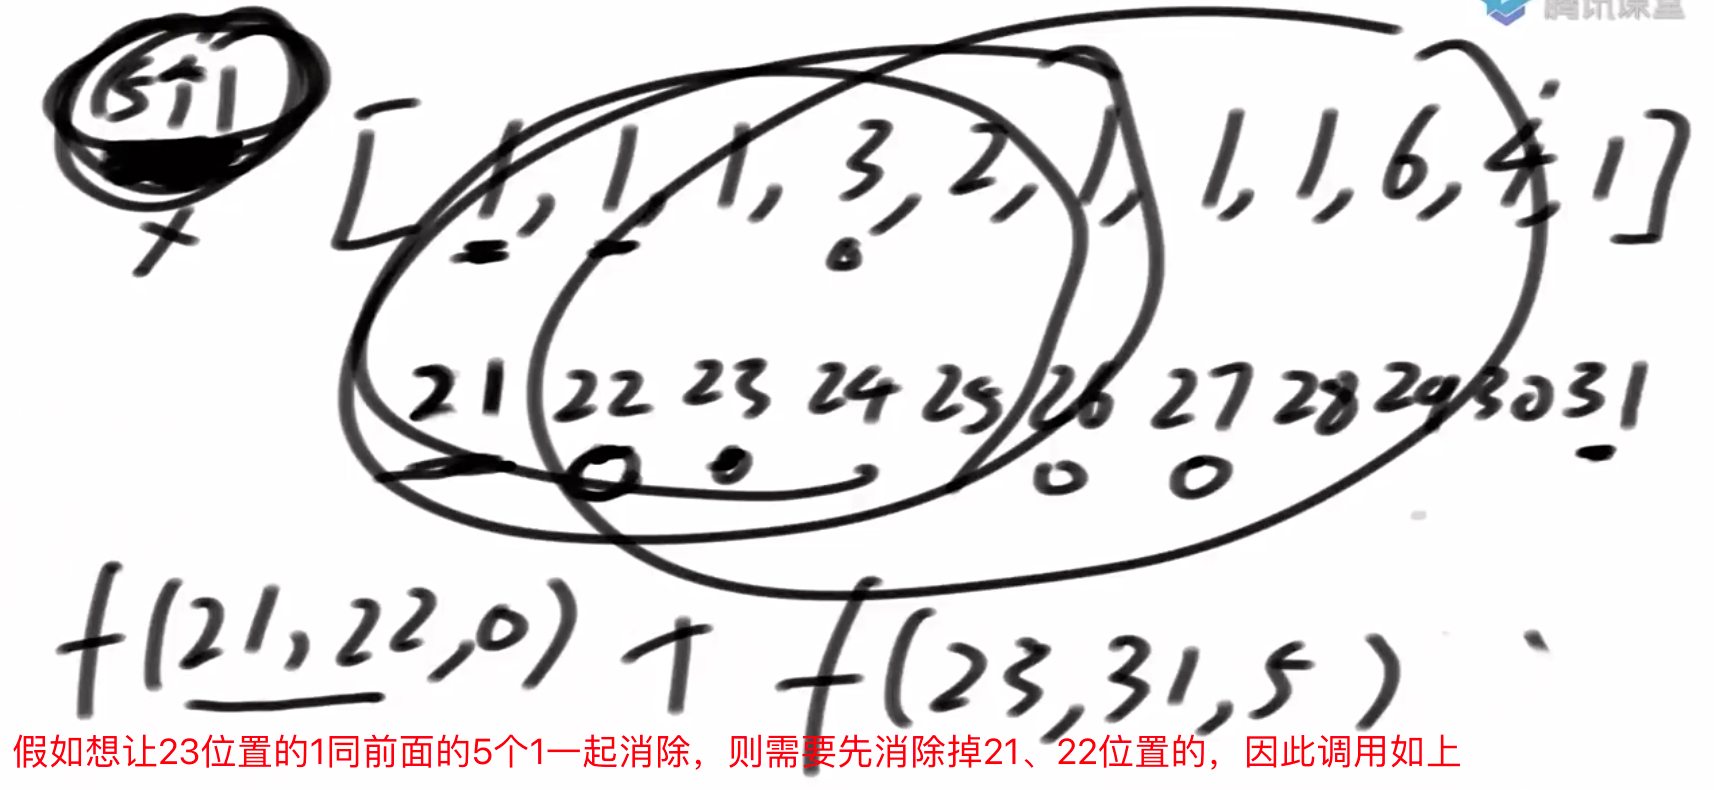 腾讯课堂
5个1 [1, 1, 1, 3, 2, 1, 1, 1, 6, 4, 1]
x
21 22 23 24 25 26 27 28 29 30 31
f(21,22,0) + f(23,31,5)
假如想让23位置的1同前面的5个1一起消除，则需要先消除掉21、22位置的，因此调用如上